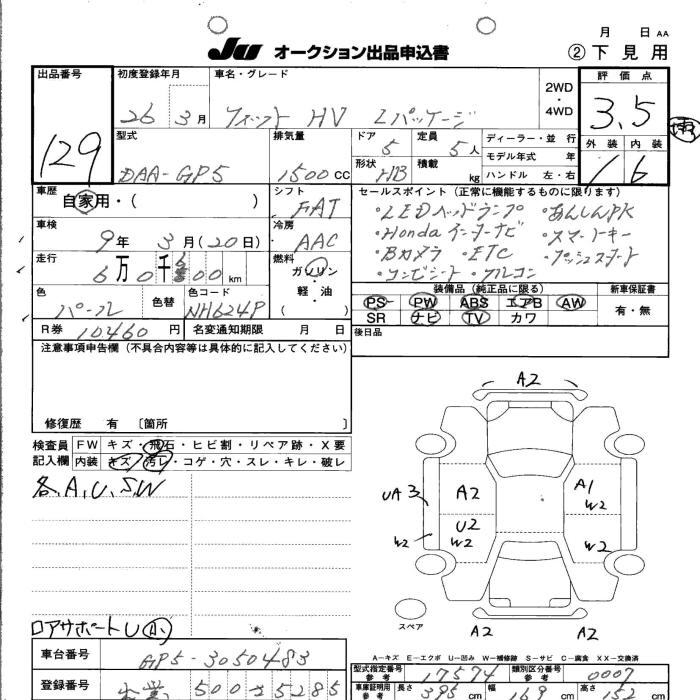 月 日 AA
JU オークション出品申込書 ② 下見用
出品番号 129
初度登録年月 26 3月
車名・グレード フィット HV Lパッケージ
2WD・4WD
評価点 3,5
外装 内装
1 6
型式 DAA-GP5
排気量 1500 CC
ドア 5
定員 5人
形状 HB
積載 kg
ディーラー・並 行
モデル年式 年
ハンドル 左・右
車歴 自家用・( )
シフト FAT
車検 9年 3月(20日)
冷房 AAC
走行 6万0千 00 km
燃料 ガソリン・軽・油 ( )
色 パール
色替
色コード NH624P
R券 10460 円
名変通知期限 月 日
セールスポイント (正常に機能するものに限ります)
・LEDヘッドランプ ・あんしんPK
・Hondaインターナビ ・スマートキー
・Bカメラ ・ETC ・プッシュスタート
・コンビシート ・アルコン
装備品 (純正品に限る) 新車保証書
PS PW ABS エアB AW 有・無
SR ナビ TV カワ
後日品
注意事項申告欄 (不具合内容等は具体的に記入してください)
修復歴 有 〔箇所 〕
検査員記入欄
FW キズ・飛石・ヒビ割・リペア跡・X要
内装 キズ・汚レ・コゲ・穴・スレ・キレ・破レ
各、A,U,SW
ロアサポートU 小
A2
UA3 A2 A1
W2 U2 W2 W2
A2 A2
スペア
A-キズ E-エクボ U-凹み W-補修跡 S-サビ C-腐食 XX-交換済
車台番号 GP5-3050483
型式指定番号 参考 17574
類別区分番号 参考 0007
登録番号 500 さ 5285
車庫証明用 参考 長さ 395 cm 幅 169 cm 高さ 152 cm